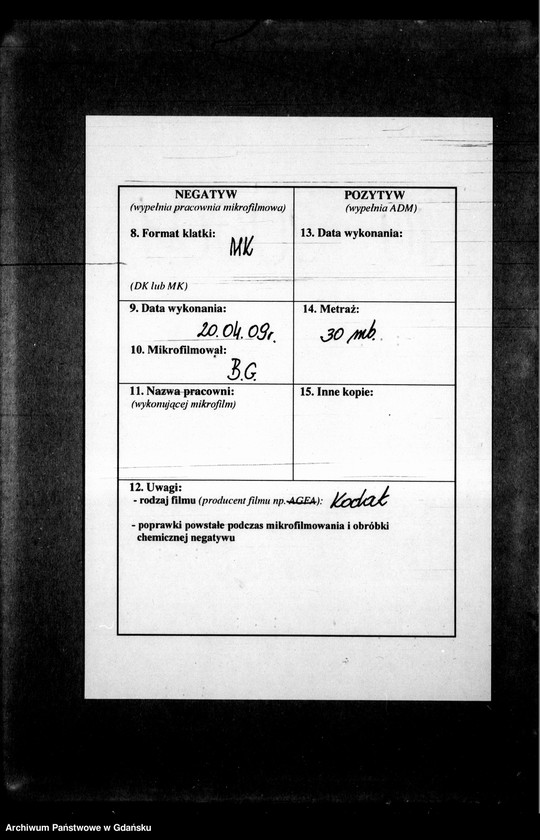 NEGATYW
(wypełnia pracownia mikrofilmowa)
8. Format klatki:
MK
(DK lub MK)
POZYTYW
(wypełnia ADM)
13. Data wykonania:
9. Data wykonania:
20.04.09r.
10. Mikrofilmował:
B.G.
14. Metraż:
30 mb.
11. Nazwa pracowni:
(wykonującej mikrofilm)
15. Inne kopie:
12. Uwagi:
- rodzaj filmu (producent filmu np. AGFA): Kodak
- poprawki powstałe podczas mikrofilmowania i obróbki
chemicznej negatywu
Archiwum Państwowe w Gdańsku